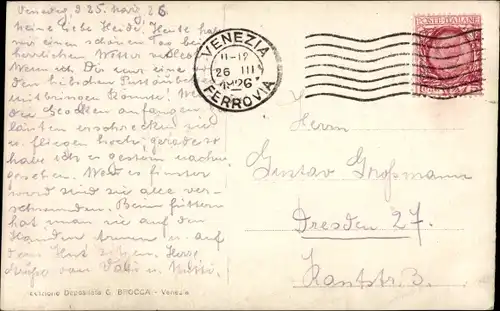 Venedig, d. 25. März 26.
Meine liebe Heidi. Heute hat
mir einen schönen Tag bei
herrlichen Wetter
Wenn ich Dir nur eine
den hübschen
mitbringen könnte! We
die Glocken anfangen
läuten erschrecken sie
u. fliegen hoch, gerade so
habe ich es gestern nachm.
gesehen. Wenn es finster
wird sind sie alle ver-
schwunden. Beim füttern
hat man sie auf den
Händen u. auf
dem Hut sitzen. Herz.
Grüße von Vati u. Mutti.
VENEZIA
11-12
26 III
1926
FERROVIA
POSTE ITALIANE
Herrn
Gustav Großmann
Dresden 27.
Kantstr. 3.
Edizione Depositata G. BROCCA - Venezia